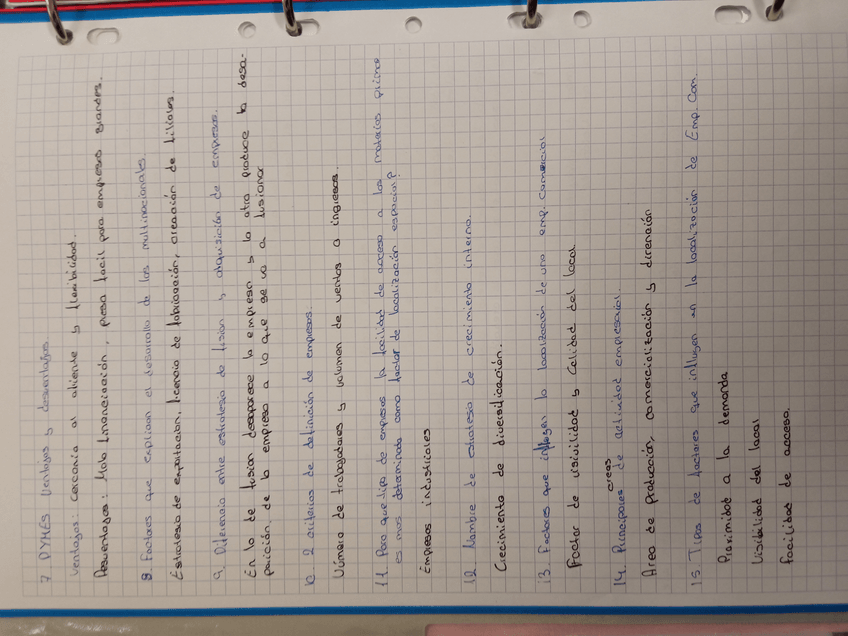 7 PYMES Ventajas y desventajas
ventajas: cercania al cliente y flexibilidad.
Desventajas: Mala financiación, presa facil para empresas grandes.
8. Factores que explican el desarrollo de las multinacionales
Estrategia de exportación, licencia de fabricación, creación de filiales.
9. Diferencia entre estrategia de fusion y adquisición de empresas.
En la de fusion desaparece la empresa y la otra produce la desa-
parición, de la empresa a la que se va a fusionar
10 2 criterios de definición de empresas.
Número de trabajadores y volumen de ventas o ingresos.
11. Para que tipo de empresas la facilidad de acceso a las materias primas
es mas determinada como factor de localización espacial?
Empresas industriales
12. Nombre de estrategia de crecimiento interno.
Crecimiento de diversificación.
13. Factores que influyen la localización de una emp. comercial
Factor de visivilidad y Calidad del local
14. Principales areas de actividad empresarial.
Area de producción, comercialización y dirección
15 Tipos de factores que influyen en la localización de Emp. Com.
Proximidad a la demanda
Visibilidad del local
facilidad de acceso.